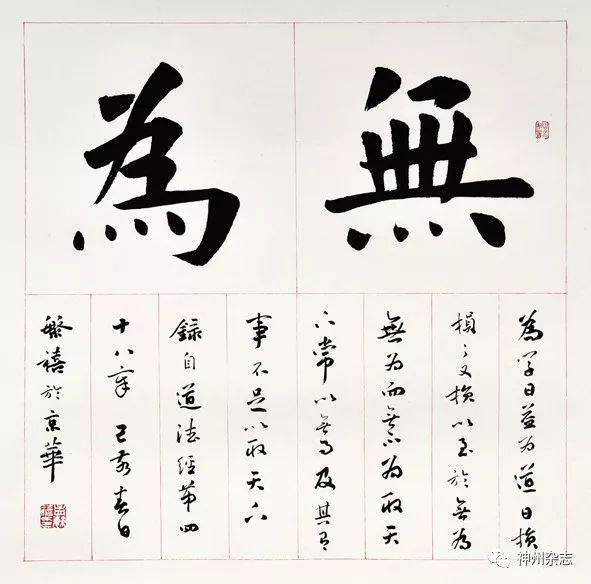 無為
為學日益為道日損
損之又損以至於無為
無為而無不為取天
下常以無事及其有
事不足以取天下
錄自道德經第四
十八章 己亥春日
繁禧於京華
神州杂志